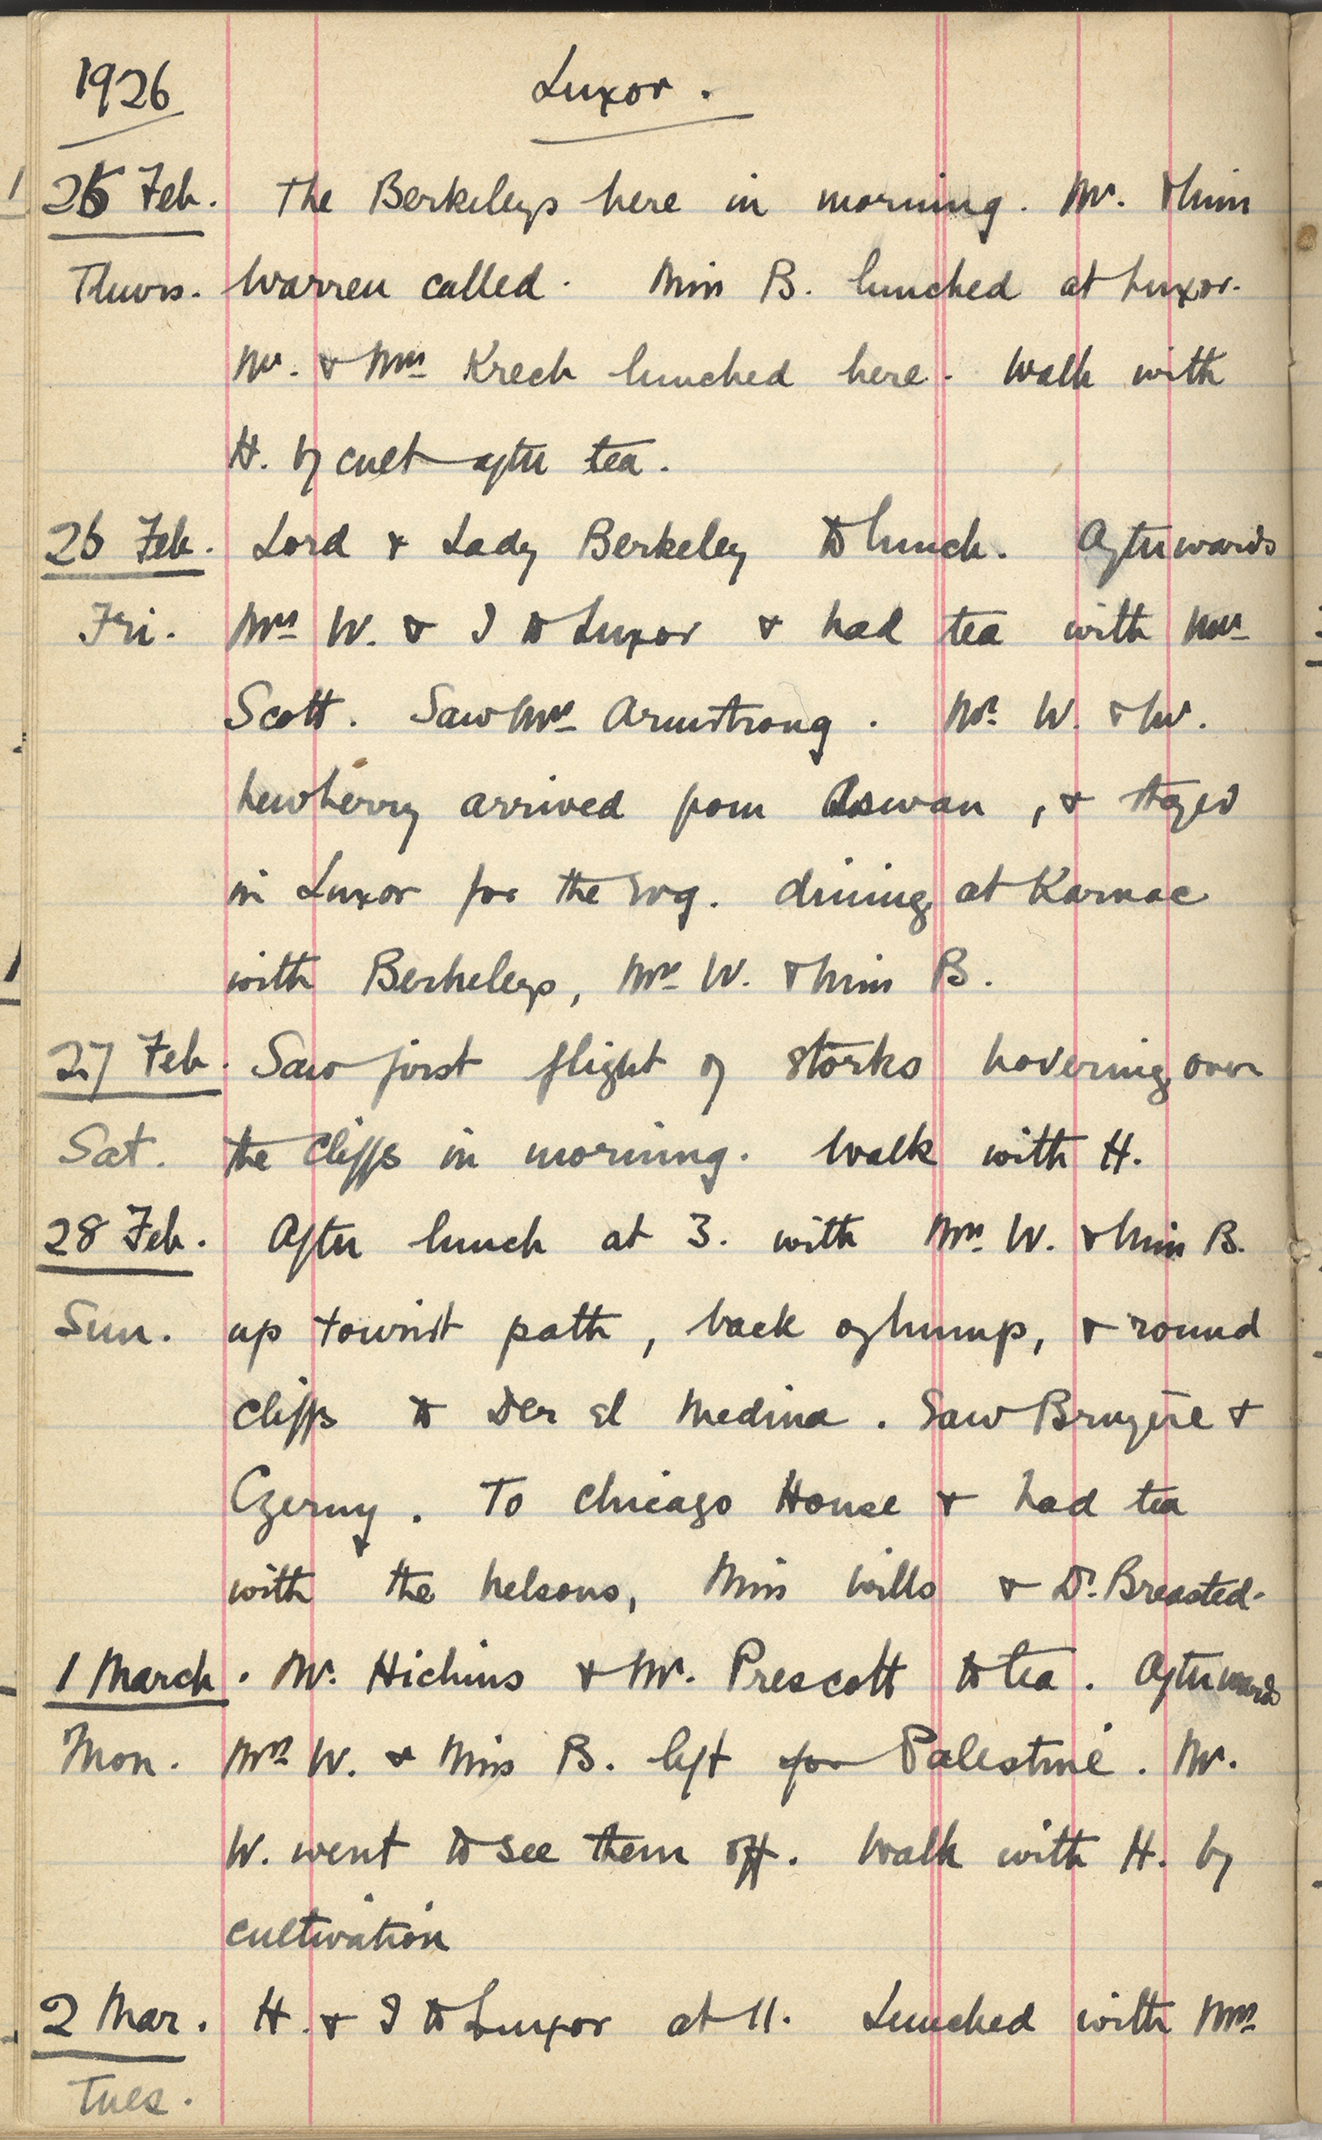 1926 Luxor.
25 Feb. The Berkeleys here in morning. Mr. & Miss
Thurs. Warren called. Miss B. lunched at Luxor.
Mr. & Mrs Krech lunched here. Walk with
H. by cult after tea.
26 Feb. Lord & Lady Berkeley to lunch. Afterwards
Fri. Mrs W. & I to Luxor & had tea with Mrs
Scott. Saw Mrs Armstrong. Mr. W. & Mr.
Newberry arrived from Aswan, & stayed
in Luxor for the evg. dining at Karnac
with Berkeleys, Mrs W. & Miss B.
27 Feb. Saw first flight of storks hovering over
Sat. the cliffs in morning. Walk with H.
28 Feb. After lunch at 3. with Mrs W. & Miss B.
Sun. up tourist path, back of hump, & round
cliffs to Der el Medina. Saw Bruyère &
Czerny. To Chicago House & had tea
with the Nelsons, Miss Wills & Dr. Breasted.
1 March. Mr. Hichins & Mr. Prescott to tea. Afterwards
Mon. Mrs W. & Miss B. left for Palestine. Mr.
W. went to see them off. Walk with H. by
cultivation
2 Mar. H. & I to Luxor at 11. Lunched with Mrs
Tues.